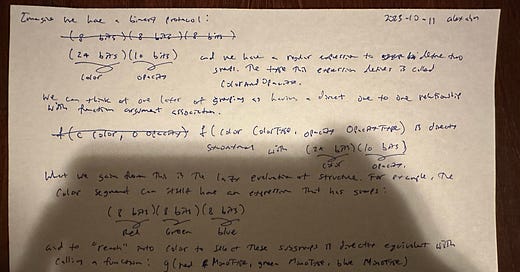 Imagine we have a binary protocol: 2023-10-11
(8 bits)(8 bits)(8 bits)
(24 bits)(10 bits) and we have a regular expression to define two
color opacity groups. The type this expression defines is called
ColorAndOpacity.
We can think of one layer of grouping as having a direct one to one relationship
with function argument association.
f(c color, o opacity) f(color ColorType, opacity OpacityType) is directly
synonymous with (24 bits)(10 bits)
color opacity.
What we gain from this is the lazy evaluation of structure. For example, the
Color segment can itself have an expression that has groups:
(8 bits)(8 bits)(8 bits)
red green blue
and to "reach" into color to select these subgroups is directly equivalent with
calling a function: g(red MonoType, green MonoType, blue MonoType)